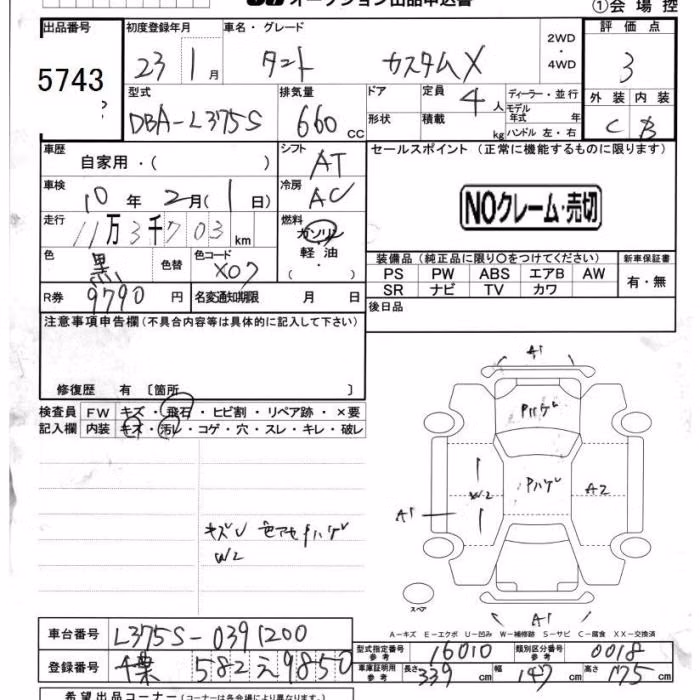 オークション出品申込書
①会場控
出品番号 初度登録年月 車名・グレード 2WD・4WD 評価点
5743 23 1月 タント カスタムX 3
型式 排気量 ドア 定員 4人 ディーラー・並行 外装 内装
DBA-L375S 660cc 形状 積載 kg モデル年式 年 C B
ハンドル 左・右
車歴 自家用・( ) シフト AT セールスポイント (正常に機能するものに限ります)
車検 10年 2月(1日) 冷房 AC
NOクレーム・売切
走行 11万3千703km 燃料 ガソリン・軽油・( )
色 黒 色替 色コード X07
装備品 (純正品に限り〇をつけてください) 新車保証書
PS PW ABS エアB AW 有・無
SR ナビ TV カワ
R券 9790円 名変通知期限 月 日 後日品
注意事項申告欄 (不具合内容等は具体的に記入して下さい)
修復歴 有 〔箇所 〕
検査員 FW キズ・飛石・ヒビ割・リペア跡・×要
記入欄 内装 キズ・汚レ・コゲ・穴・スレ・キレ・破レ
A1
Pハゲ
W2 Pハゲ A2
A1
キズU 色アセ Pハゲ
W2
スペア
A1
A-キズ E-エクボ U-凹み W-補修跡 S-サビ C-腐食 XX-交換済
車台番号 L375S-0391200
型式指定番号 参考 16010 類別区分番号 参考 0018
登録番号 千葉 582 え 9850
車庫証明用 参考 長さ 339cm 幅 147cm 高さ 175cm
希望出品コーナー